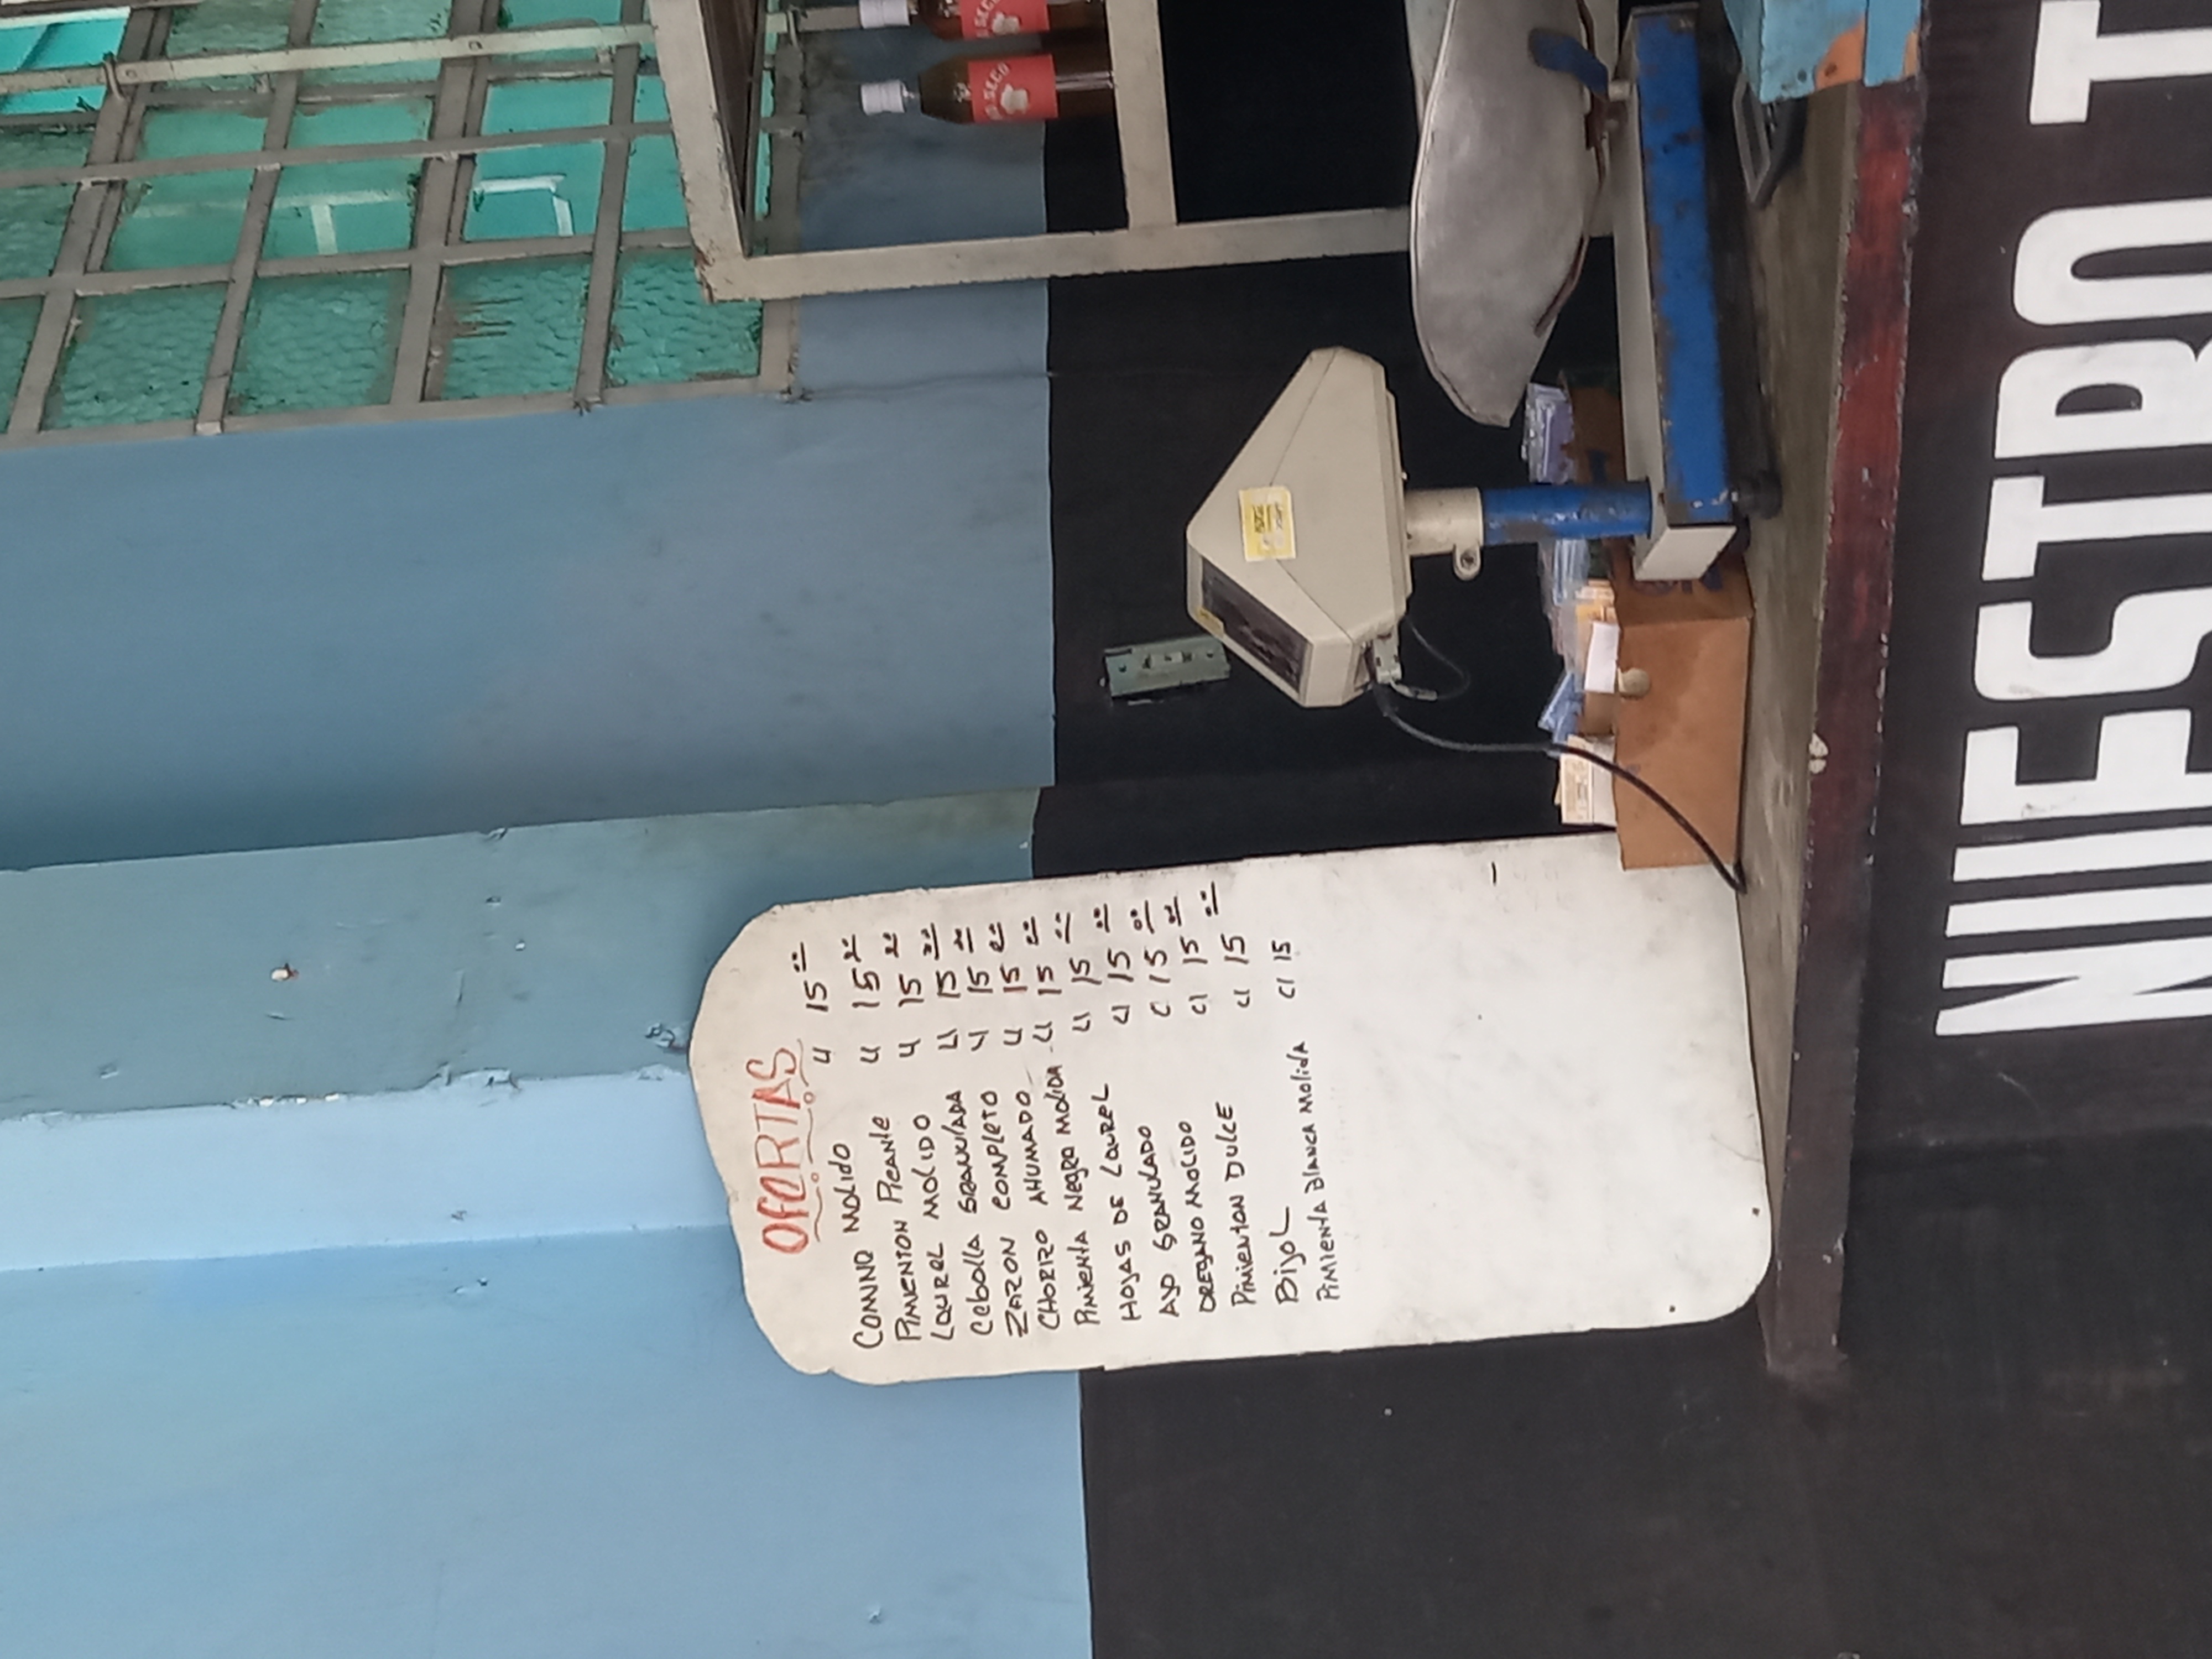 OFERTAS
COMINO MOLIDO U 15 00
PIMIENTON PICANTE U 15 00
LAUREL MOLIDO U 15 00
CEBOLLA GRANULADA U 15 00
ZAZON COMPLETO U 15 00
CHORIZO AHUMADO U 15 00
PIMIENTA NEGRA MOLIDA U 15 00
HOJAS DE LAUREL U 15 00
AJO GRANULADO U 15 00
OREGANO MOLIDO C 15 00
PIMIENTON DULCE CI 15 00
BIJOL CI 15 00
PIMIENTA BLANCA MOLIDA CI 15
SECO
SECO
NUESTRO T